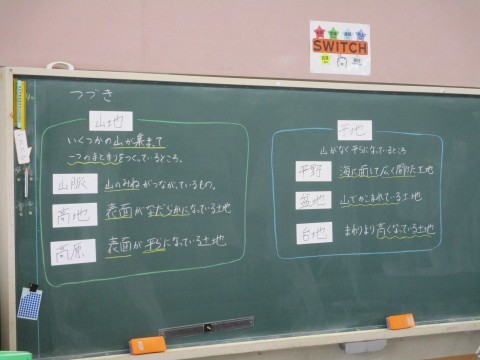 SWITCH
つづき
山地
いくつかの山が集まって
一つのまとまりをつくっているところ。
山脈
山のみねがつながっているもの。
高地
表面がなだらかになっている土地
高原
表面が平らになっている土地
平地
山がなく平らになっているところ
平野
海に面して広く開けた土地
盆地
山でかこまれている土地
台地
まわりより高くなっている土地